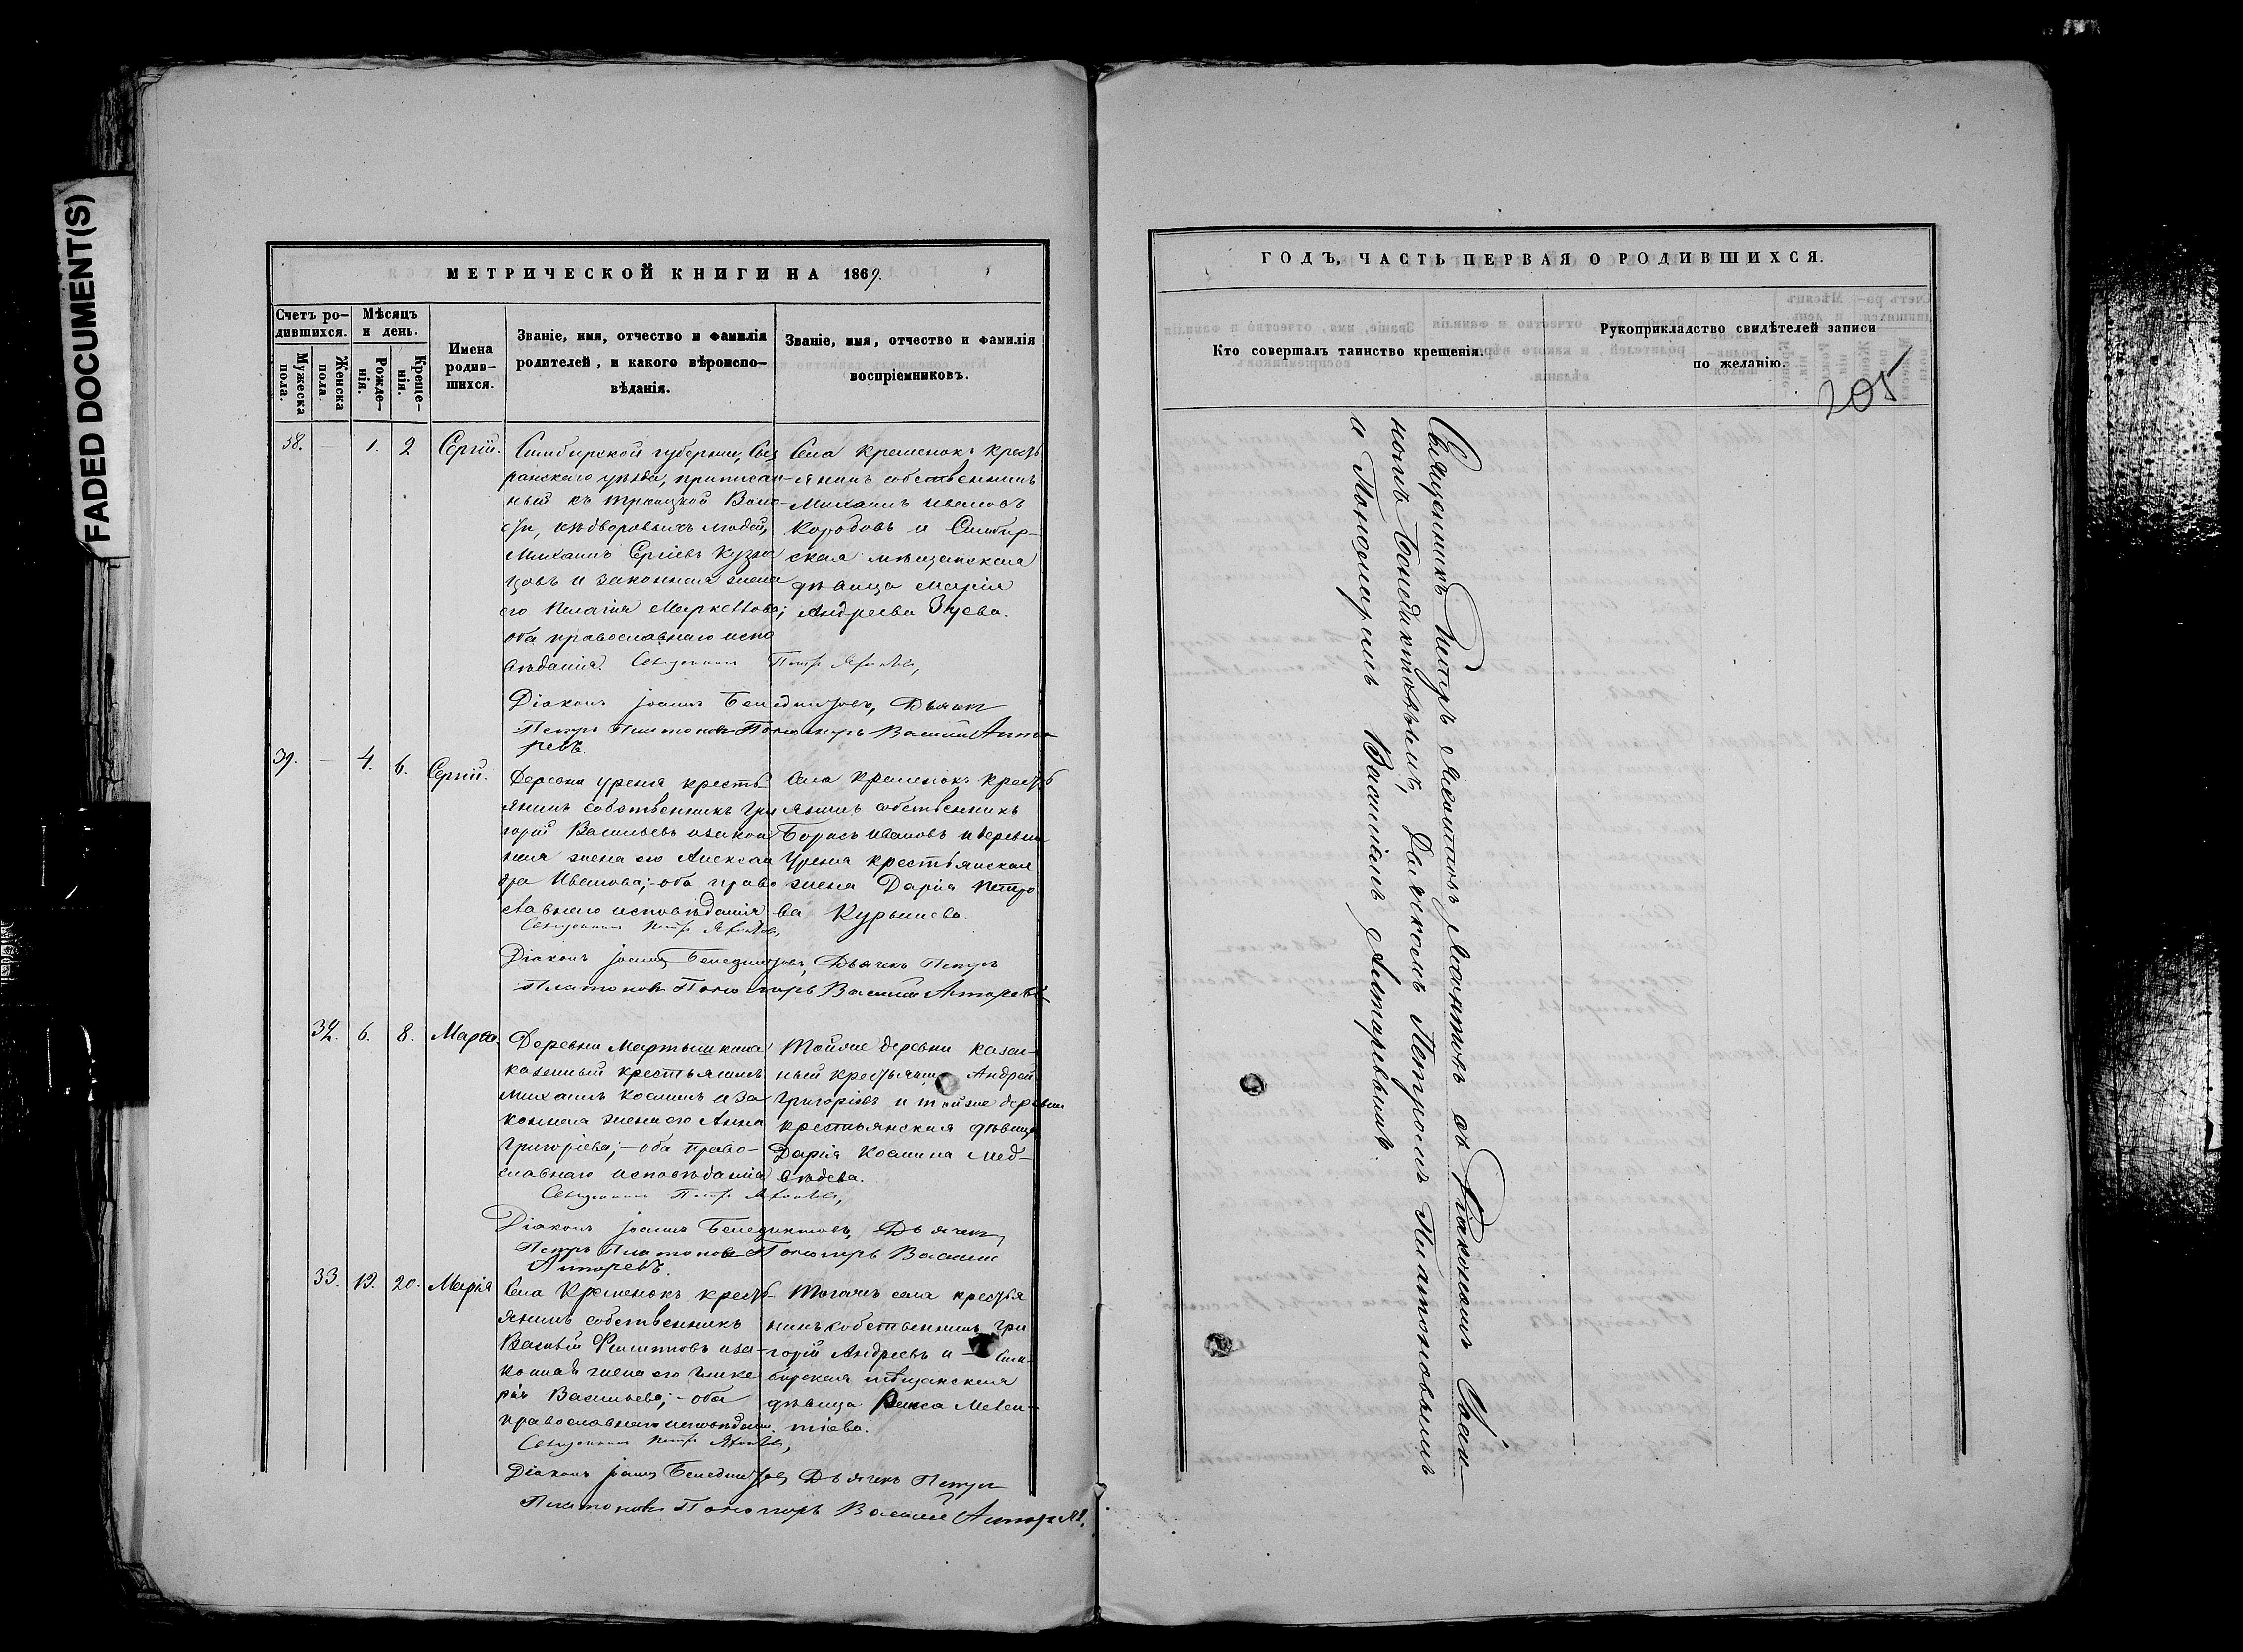 FADED DOCUMENT(S)
МЕТРИЧЕСКОЙ КНИГИ НА 1869.
Счетъ ро-
дившихся.
Мужеска
пола.
Женска
пола.
Мѣсяцъ
и день.
Рожде-
нія.
Креще-
нія.
Имена
родив-
шихся.
Званіе, имя, отчество и фамилія
родителей, и какого вѣроиспо-
вѣданія.
Званіе, имя, отчество и фамилія
воспріемниковъ.
38. — 1. 2 Сергій.
Симбирской губерніи, Сыз
ранскаго уѣзда, приписан-
ный къ Троицкой Воло-
сти, изъ дворовыхъ людей,
Михаилъ Сергіевъ Кузне
цовъ и законная жена
его Пелагія Маркелова;
оба православнаго испо
вѣданія.
Села Кременокъ крестъ
янинъ собственникъ
Михаилъ Ивановъ
Коробовъ и Симбир-
ская мѣщанская
дѣвица Марія
Андреева Зуева.
Священникъ Петръ
Діаконъ Іоаннъ Бенедиктовъ, Дьячекъ
Петръ Платоновъ Пономарь Василій Алта
ревъ.
39. — 4. 6. Сергій.
Деревни Уреня кресть
янинъ собственникъ Гри
горій Васильевъ и закон
ная жена его Алексан
дра Иванова; - оба право
славнаго исповѣданія
Села Кременокъ крестъ
янинъ собственникъ
Борисъ Ивановъ и деревни
Уреня крестьянская
жена Дарія Петро
ва Курышева.
Священникъ Петръ
Діаконъ Іоаннъ Бенедиктовъ, Дьячекъ Петръ
Платоновъ Пономарь Василій Алтаревъ
32. 6. 8. Марѳа.
Деревни Мартышкина
казенный крестьянинъ
Михаилъ Косминъ и за
конная жена его Анна
Григоріева; - оба право-
славнаго исповѣданія
Тойже деревни казен-
ный крестьянинъ Андрей
Григоріевъ и тойже деревни
крестьянская дѣвица
Дарія Космина Мед-
вѣдева.
Священникъ Петръ
Діаконъ Іоаннъ Бенедиктовъ, Дьячекъ
Петръ Платоновъ Пономарь Василій
Алтаревъ.
33. 19. 20. Марія
Села Кременокъ крестъ-
янинъ собственникъ
Василій Филиповъ и за-
конная жена его Глике
рія Васильева; - оба
православнаго исповѣдан.
Тогожъ села крестья
нинъ собственникъ Гри
горій Андреевъ и — Сим-
бирская мѣщанская
дѣвица Раиса Мелен-
тіева.
Священникъ Петръ
Діаконъ Іоаннъ Бенедиктовъ, Дьячекъ Петръ
Платоновъ Пономарь Василій Алтаревъ.
ГОДЪ, ЧАСТЬ ПЕРВАЯ О РОДИВШИХСЯ.
Кто совершалъ таинство крещенія.
Рукоприкладство свидѣтелей записи
по желанію.
205
Священникъ Петръ съ Діакономъ Іоан-
номъ Бенедиктовымъ, Дьячкомъ Петромъ Платоновымъ
и Пономаремъ Василіемъ Алтаревымъ.